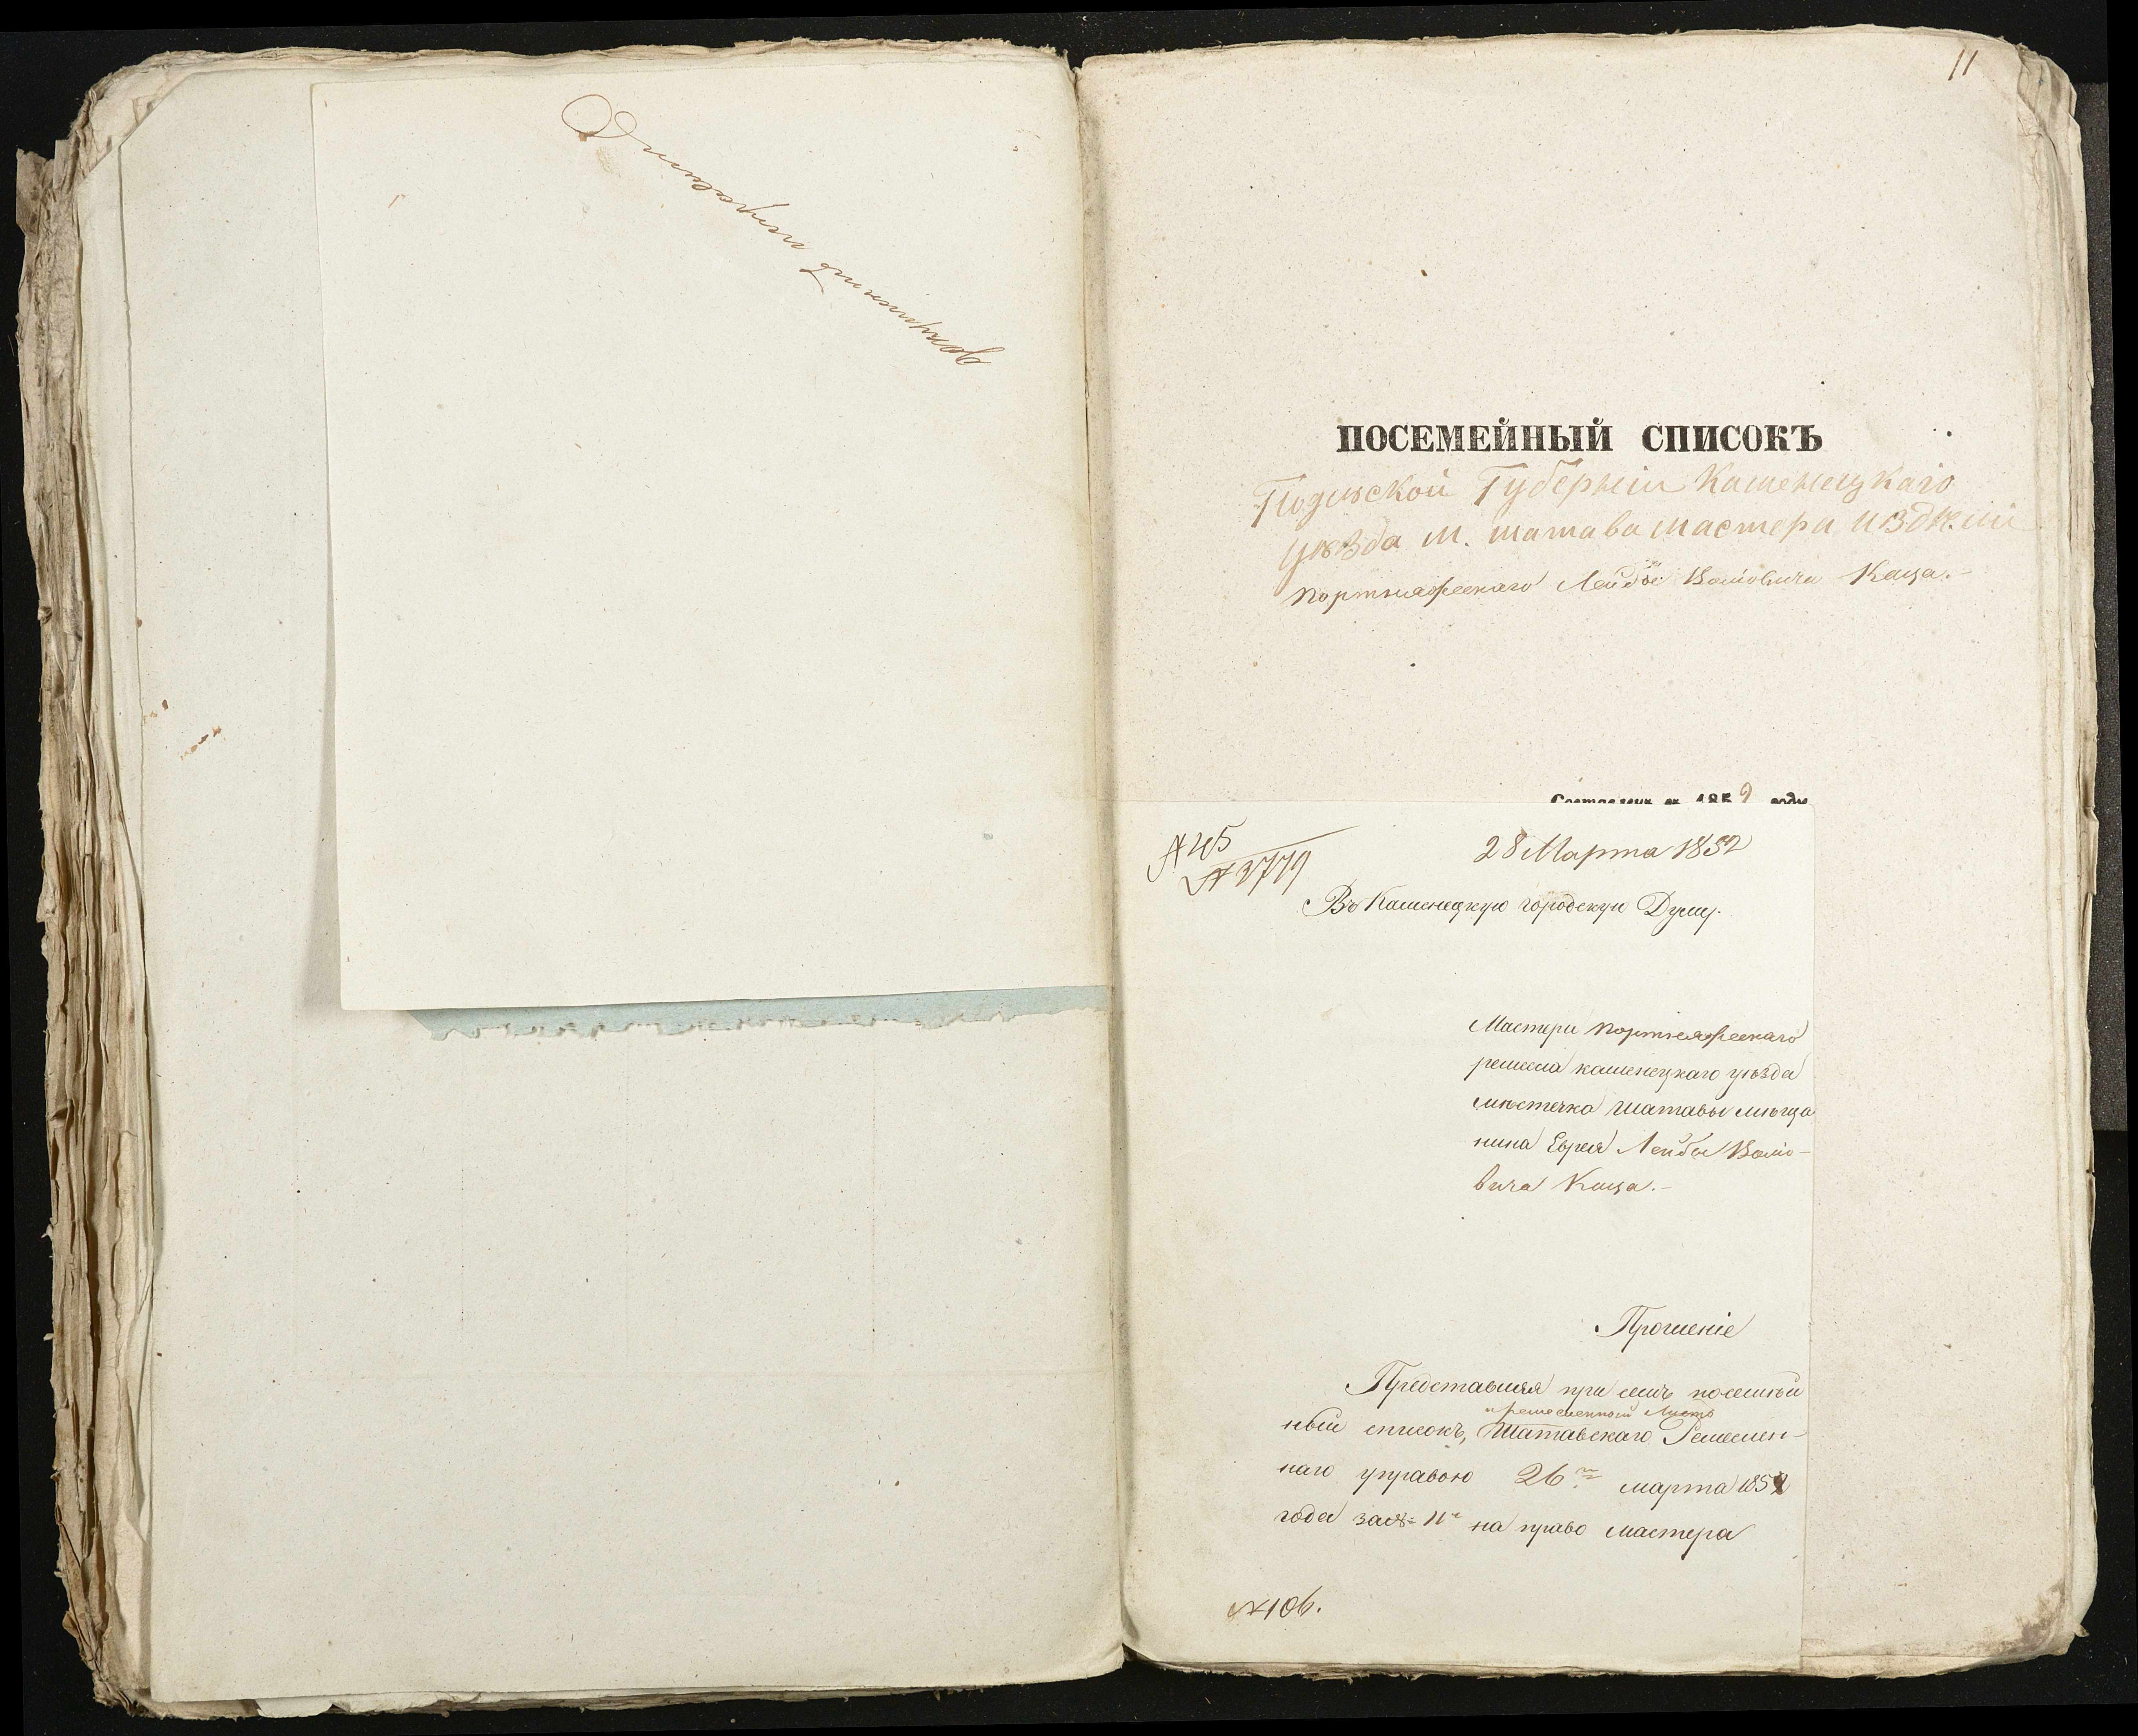 11
ПОСЕМЕЙНЫЙ СПИСОКЪ
Подольской Губерніи Каменецкаго
уѣзда м. шатава мастера
портняжескаго Лейбы Каца.-
Составленъ въ 1852 году
№ 45
№ 3779
28 Марта 1852
Въ Каменецкую городскую Думу.
Мастера портняжескаго
ремесла каменецкаго уѣзда
мѣстечка Шатавы мѣща
нина Еврея Лейбы
вича Каца.-
Прошеніе
Представляя при семъ посемѣй
и ремесленный листъ
ный списокъ, Шатавскаго Ремеслен-
наго управою 26го марта 1852
года за № 11 на право мастера
№ 106.